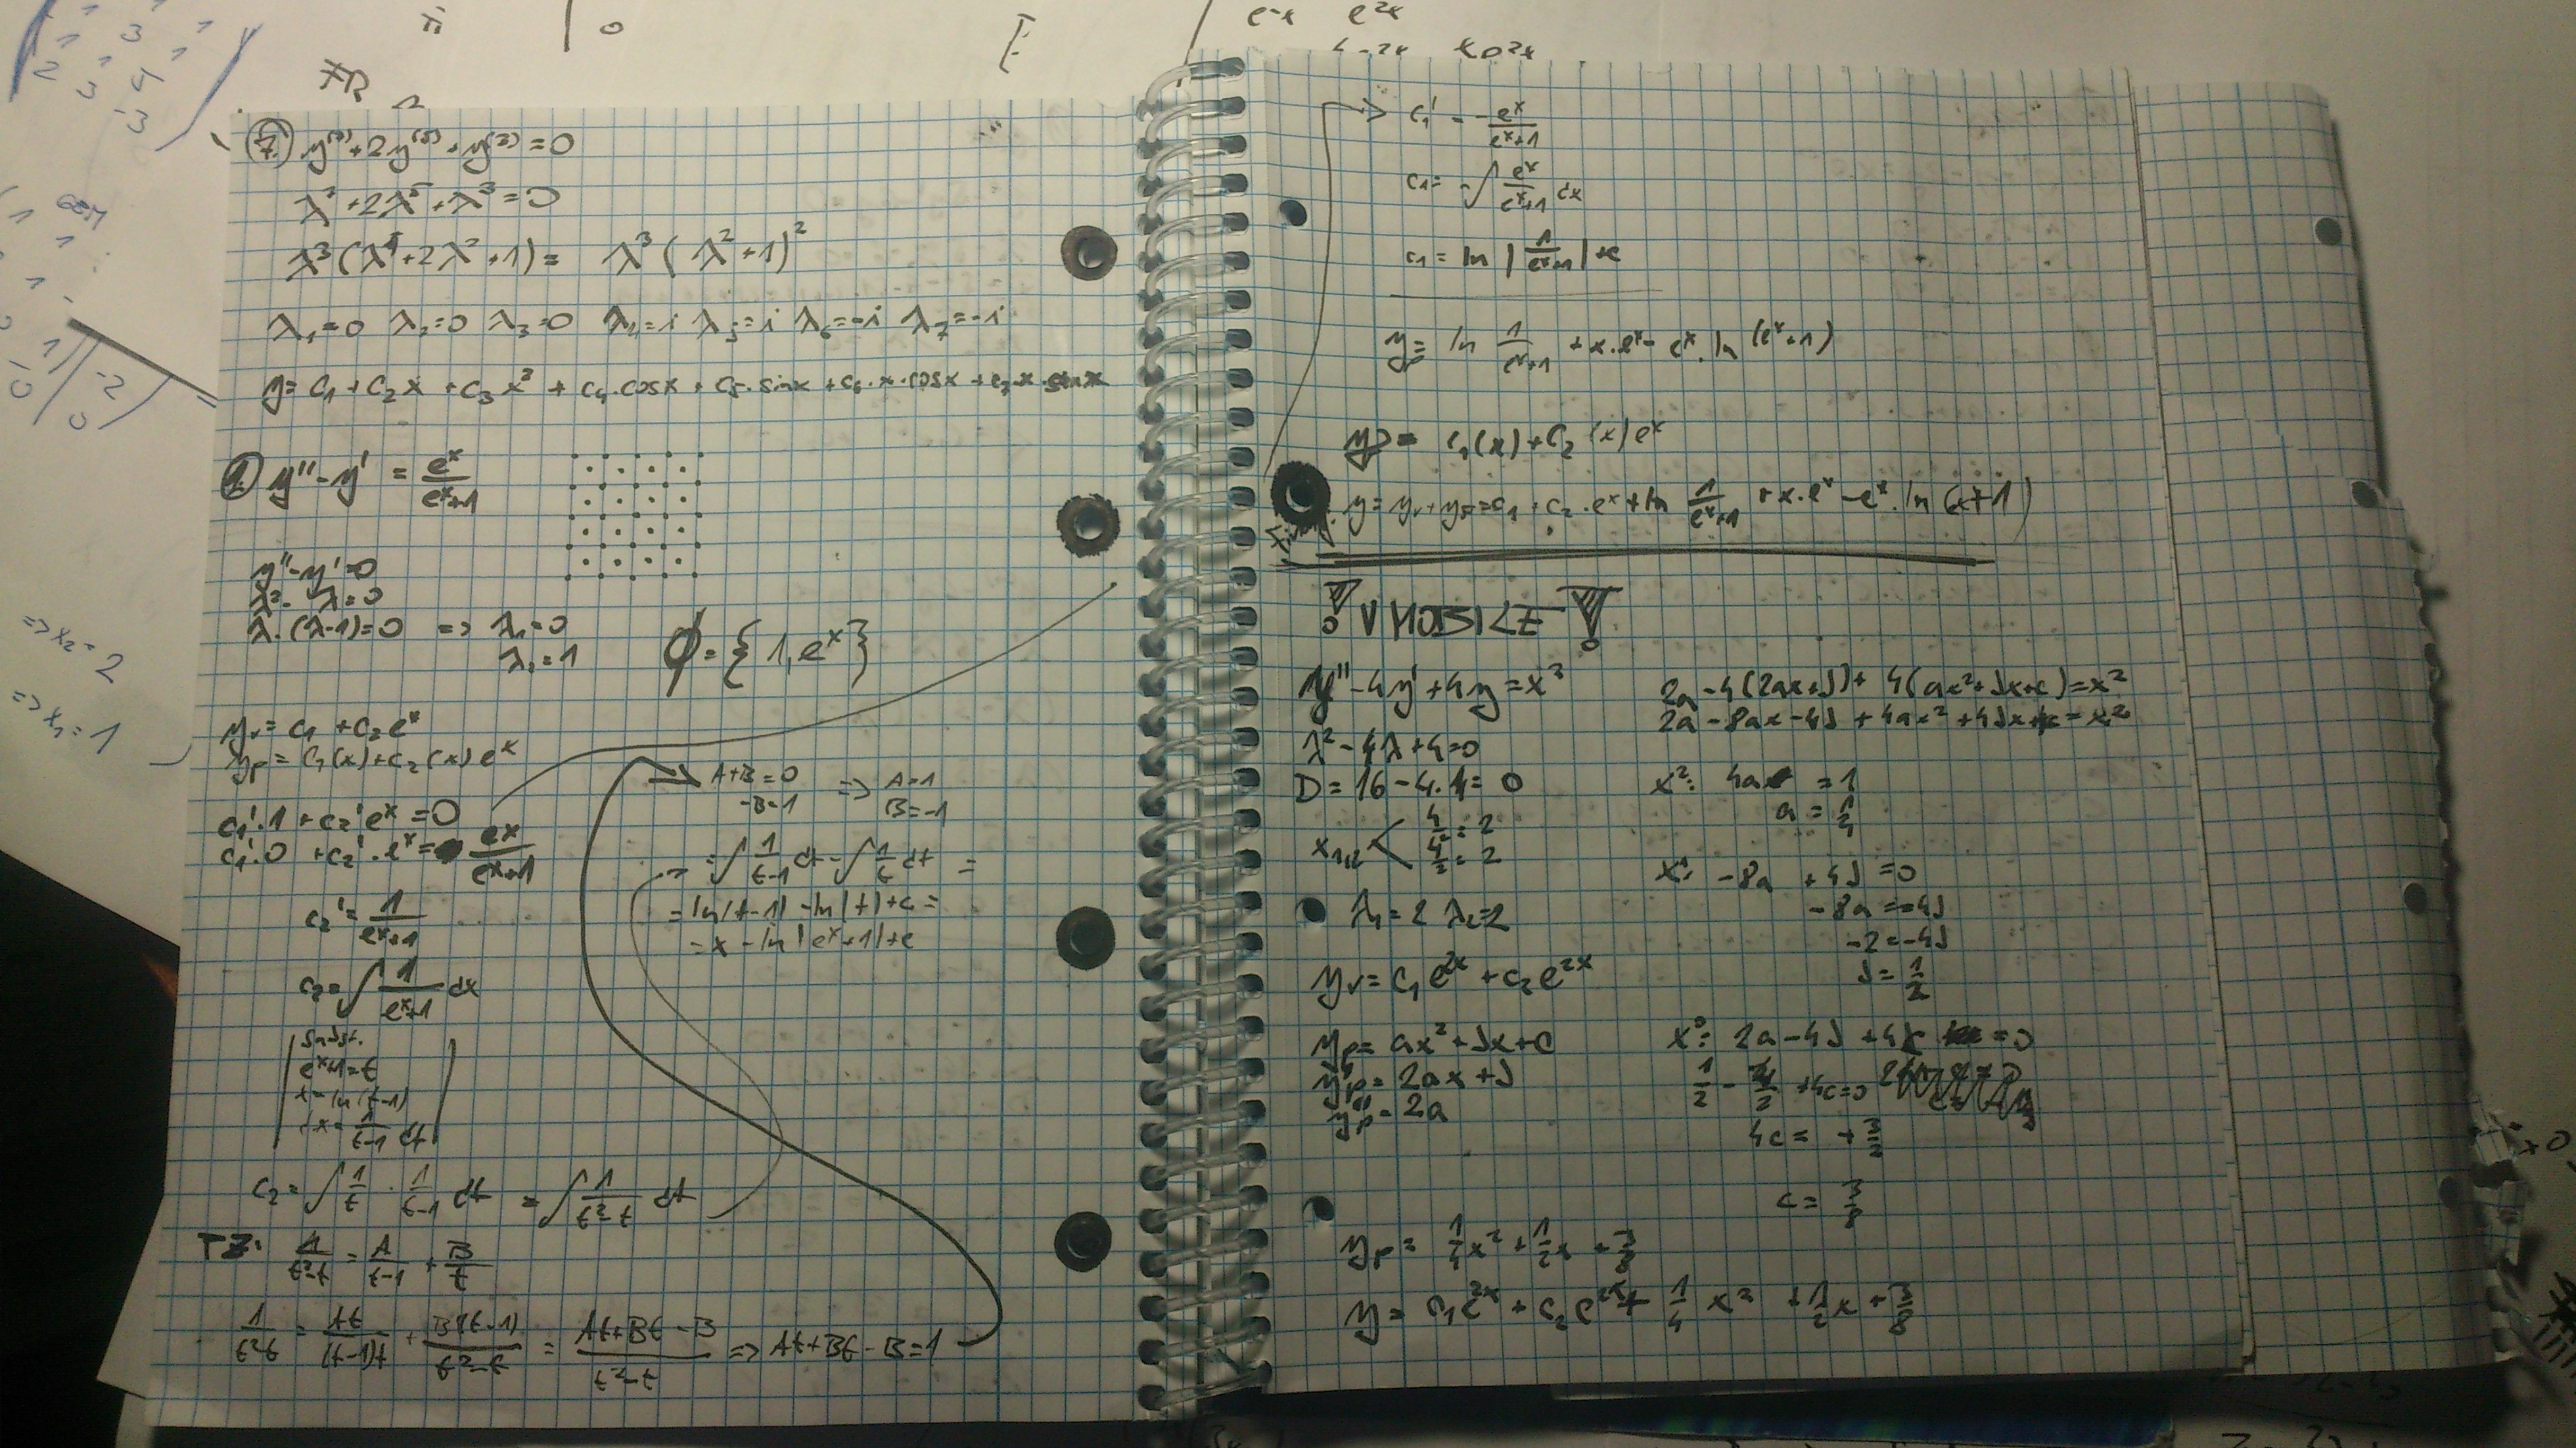 1 3 1
1 1 1
2 3 4
-3
e^-x e^2x
x e^2x
7. y^(7)+2y^(5)+y^(3)=0
λ^7+2λ^5+λ^3=0
λ^3(λ^4+2λ^2+1)= λ^3(λ^2+1)^2
λ_1=0 λ_2=0 λ_3=0 λ_4=i λ_5=i λ_6=-i λ_7=-i
y= c_1+c_2x+c_3x^2+c_4.cosx+c_5.sinx+c_6.x.cosx+c_7.x.sinx
y''-y' = e^x/(e^x+1)
y''-y'=0
λ^2-λ=0
λ.(λ-1)=0 => λ_1=0
λ_2=1
φ={1,e^x}
y_v= c_1+c_2e^x
y_p= c_1(x)+c_2(x)e^x
c_1'.1+c_2'e^x=0
c_1'.0+c_2'.e^x= e^x/(e^x+1)
c_2'= 1/(e^x+1)
c_2=∫ 1/(e^x+1) dx
subst.
e^x+1=t
x=ln(t-1)
dx= 1/(t-1) dt
c_2=∫ 1/t . 1/(t-1) dt =∫ 1/(t^2-t) dt
1/(t^2-t) = A/(t-1) + B/t
1/(t^2-t) = At/((t-1)t) + B(t-1)/(t^2-t) = (At+Bt-B)/(t^2-t) => At+Bt-B=1
A+B=0 => A=1
-B=1 B=-1
= ∫ 1/(t-1) dt - ∫ 1/t dt =
= ln|t-1| - ln|t|+c =
= x - ln|e^x+1|+c
=> x_2=2
=> x_1=1
c_1' = -e^x/(e^x+1)
c_1= -∫ e^x/(e^x+1) dx
c_1= ln|1/(e^x+1)|+c
y_p= ln 1/(e^x+1) +x.e^x-e^x.ln(e^x+1)
y_p= c_1(x)+c_2(x)e^x
y=y_v+y_p=c_1+c_2.e^x+ln 1/(e^x+1) +x.e^x-e^x.ln(e^x+1)
! V MOBILE !
y''-4y'+4y=x^2
λ^2-4λ+4=0
D=16-4.4=0
x_1,2 < 4/2=2
4/2=2
λ_1=2 λ_2=2
y_v= c_1e^2x+c_2e^2x
y_p= ax^2+bx+c
y_p'= 2ax+b
y_p''= 2a
y_p= 1/4x^2+1/2x+3/8
y= c_1e^2x+c_2e^2x+1/4x^2+1/2x+3/8
2a-4(2ax+b)+4(ax^2+bx+c)=x^2
2a-8ax-4b+4ax^2+4bx+4c=x^2
x^2: 4a =1
a= 1/4
x^1: -8a+4b=0
-8a=-4b
-2=-4b
b= 1/2
x^0: 2a-4b+4c =0
1/2 - 4/2 +4c=0
4c= +3/2
c= 3/8